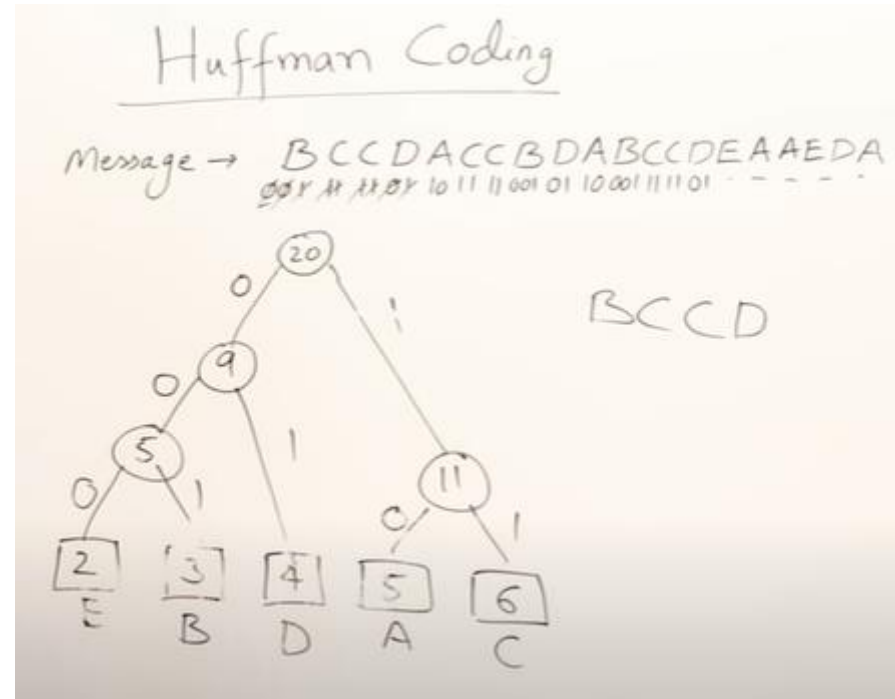 Huffman Coding
Message → BCCDACCBDABCCDEAAEDA
001 11 11 01 10 11 11 001 01 10 001 11 11 01 - - - - .
20
0 1
BCCD
9
0 1
5 11
0 1 0 1
2 3 4 5 6
E B D A C